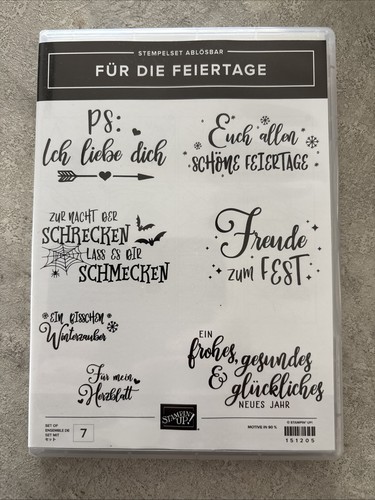 STEMPELSET ABLÖSBAR
FÜR DIE FEIERTAGE
PS:
Ich liebe dich
Euch allen
SCHÖNE FEIERTAGE
ZUR NACHT DER
SCHRECKEN
LASS ES DIR
SCHMECKEN
Freude
ZUM FEST
EIN BISSCHEN
Winterzauber
Für mein
Herzblatt
EIN
frohes, gesundes
& glückliches
NEUES JAHR
SET OF
ENSEMBLE DE
SET MIT
7
STAMPIN' UP!
MOTIVE IN 80 %
© STAMPIN' UP!
151205